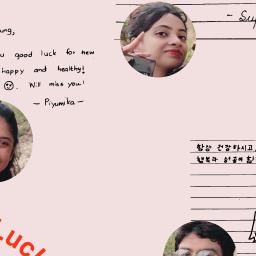 ung,
u good luck for new
happy and healthy!
Will miss you!
— Piyumika —
항상 건강하시고,
행복과
Luc